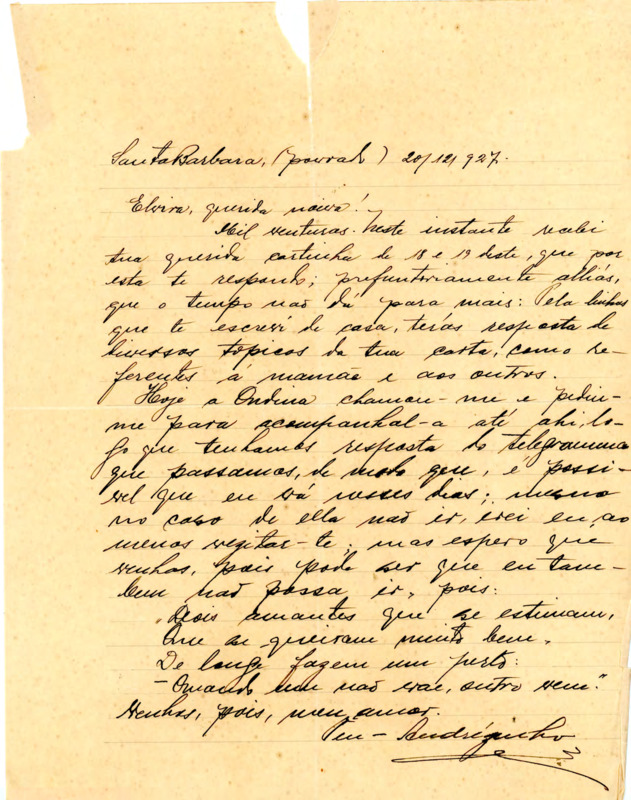 Santa Barbara, (povoado) 20/12/927.
Elvira, querida noiva!
Mil venturas. Neste instante recebi
tua querida cartinha de 18 e 19 deste, que por
esta te respondo; prefuntoriamente alliás,
que o tempo não dá para mais: Pela linhas
que te escrevi de casa, terás resposta de
diversos topicos da tua carta, como re-
ferentes á mamãe e aos outros.
Hoje a Ondina chamou-me e pediu-
me para acompanhal-a até ahi, lo-
go que tenhamos resposta do telegramma
que passamos, de modo que, é possi-
vel que eu vá nesses dias; mesmo
no caso de ella não ir, irei eu, ao
menos vizitar-te; mas espero que
venhas, pois pode ser que eu tam-
bem não possa ir, pois:
Dois amantes que se estimam,
Que se queiram muito bem,
De longe fazem um perto:
"Quando um não vae, outro vem."
Venhas, pois, meu amor.
Teu - Andrézinho